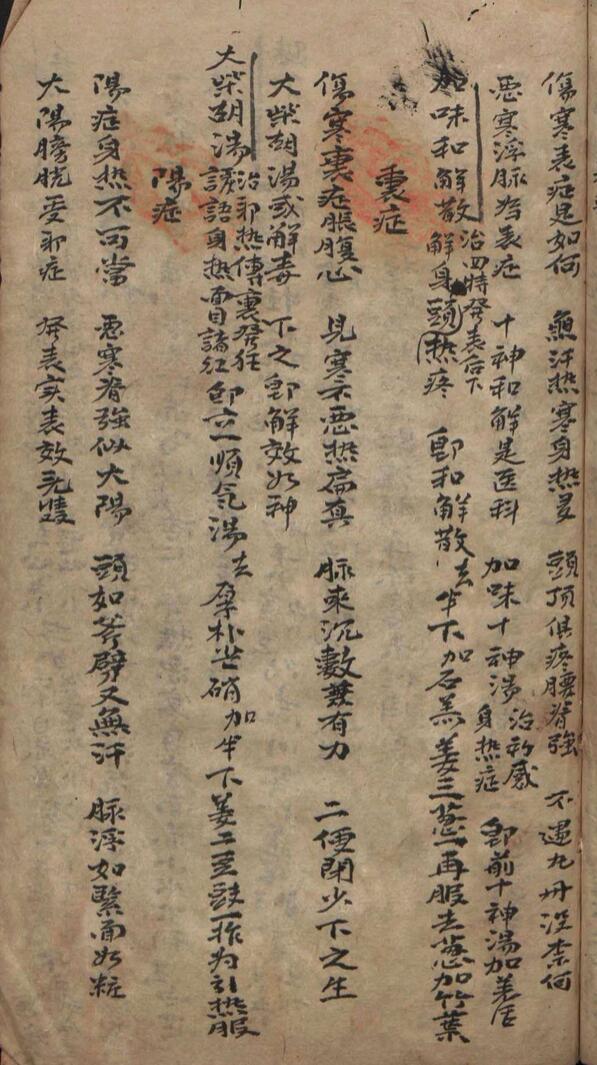 傷寒表症是如何　無汗热寒身热多　頭頂俱疼腰脊強　不遇九丹没柰何
惡寒浮脉为表症　十神和解是医科　加味十神湯　治初感身热症　即前十神湯加羌活
加味和解散　治四時發表后下觧身頭热疼　即和觧散去半下加石羔姜三葱二再服去葱加竹葉
裏症
傷寒裏症脹腹心　見寒不惡热為真　脉来沉數兼有力　二便閉少下之生
大柴胡湯或解毒　下之即解效如神
大柴胡湯　治邪热傳裏發狂譫語身热面目諸红　即立一順氣湯去厚朴芒硝加半下姜二豆豉一撮为引热服
陽症
陽症身热不可當　惡寒脊強似大陽　頭如斧劈又無汗　脉浮如緊面如粧
大陽膀胱受邪症　發表实表效无雙